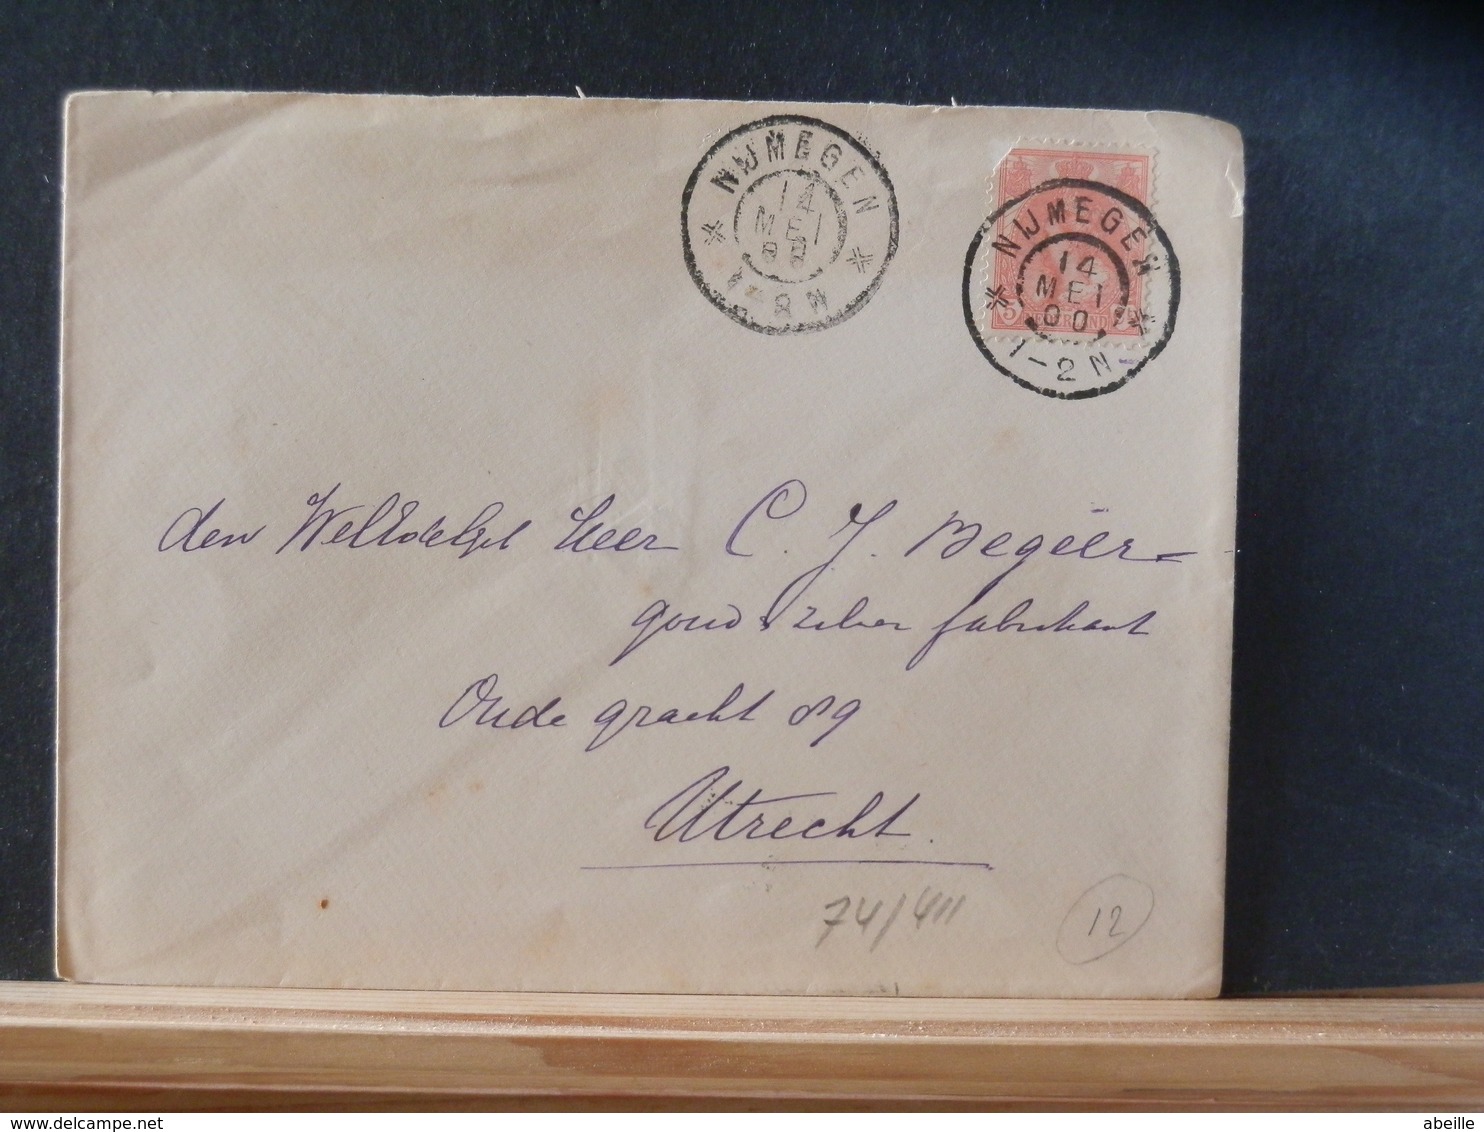 NIJMEGEN
14
MEI
1-8 N
NIJMEGEN
14
MEI
00
1-2 N
5
den WelEdelgeb Heer C. J. Begeer
goud & zilver fabrikant
Oude gracht 89
Utrecht.
74/411
12
delcampe.net
abeille